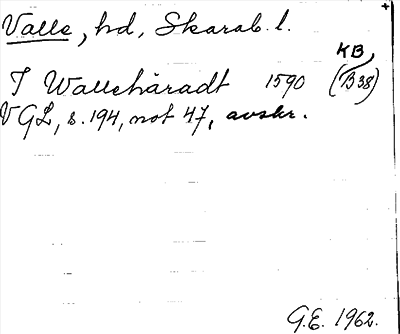 Valle, hd, Skarab. l.
KB,
I Wallehäradt 1590 (B 38)
VGL, s. 194, not 47, avskr.
G.E. 1962.